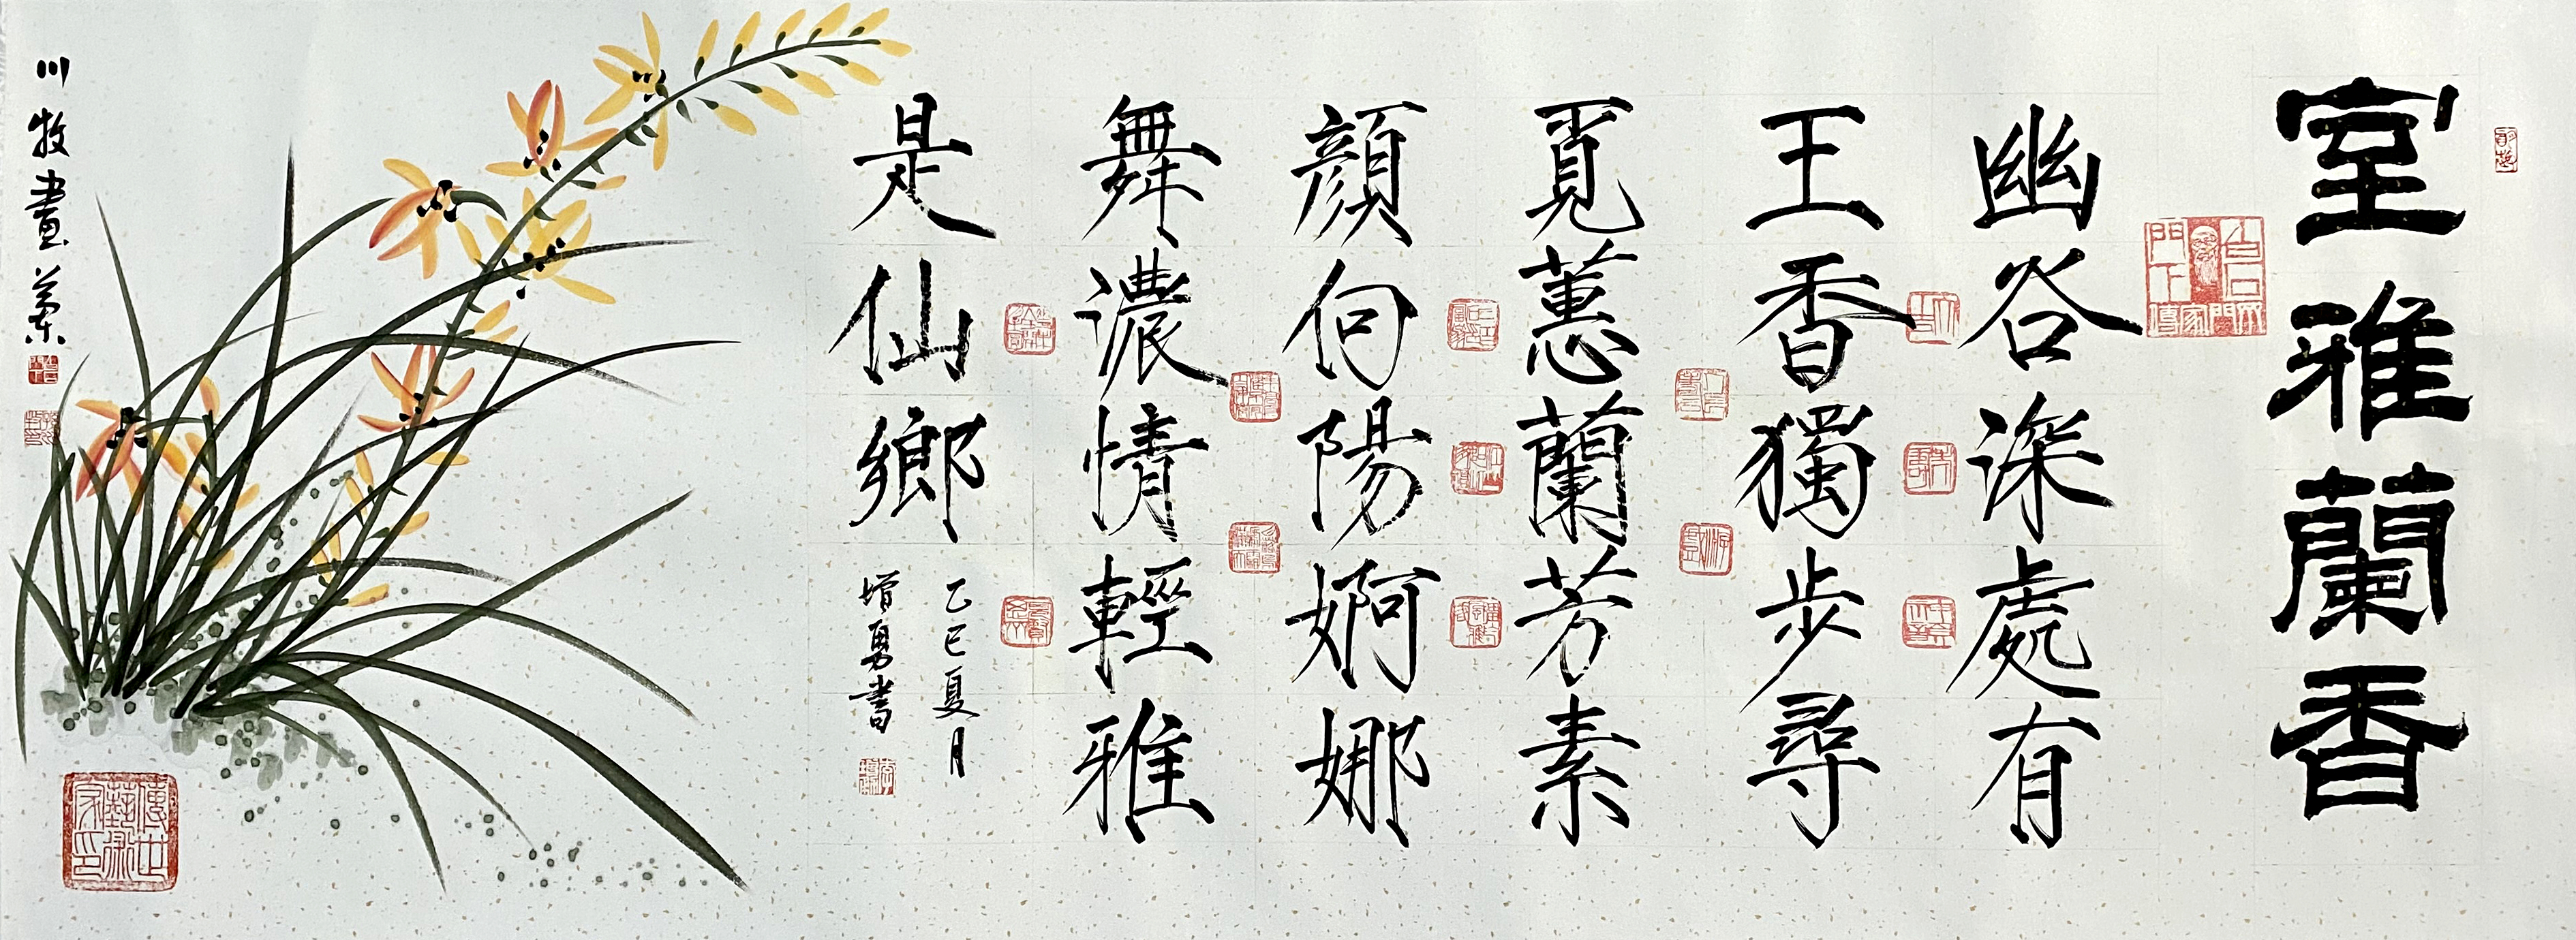 室雅蘭香
幽谷深處有
王香獨步尋
覓蕙蘭芳素
顏向陽婀娜
舞濃情輕雅
是仙鄉
乙巳夏月
增勇書
川牧畫蘭